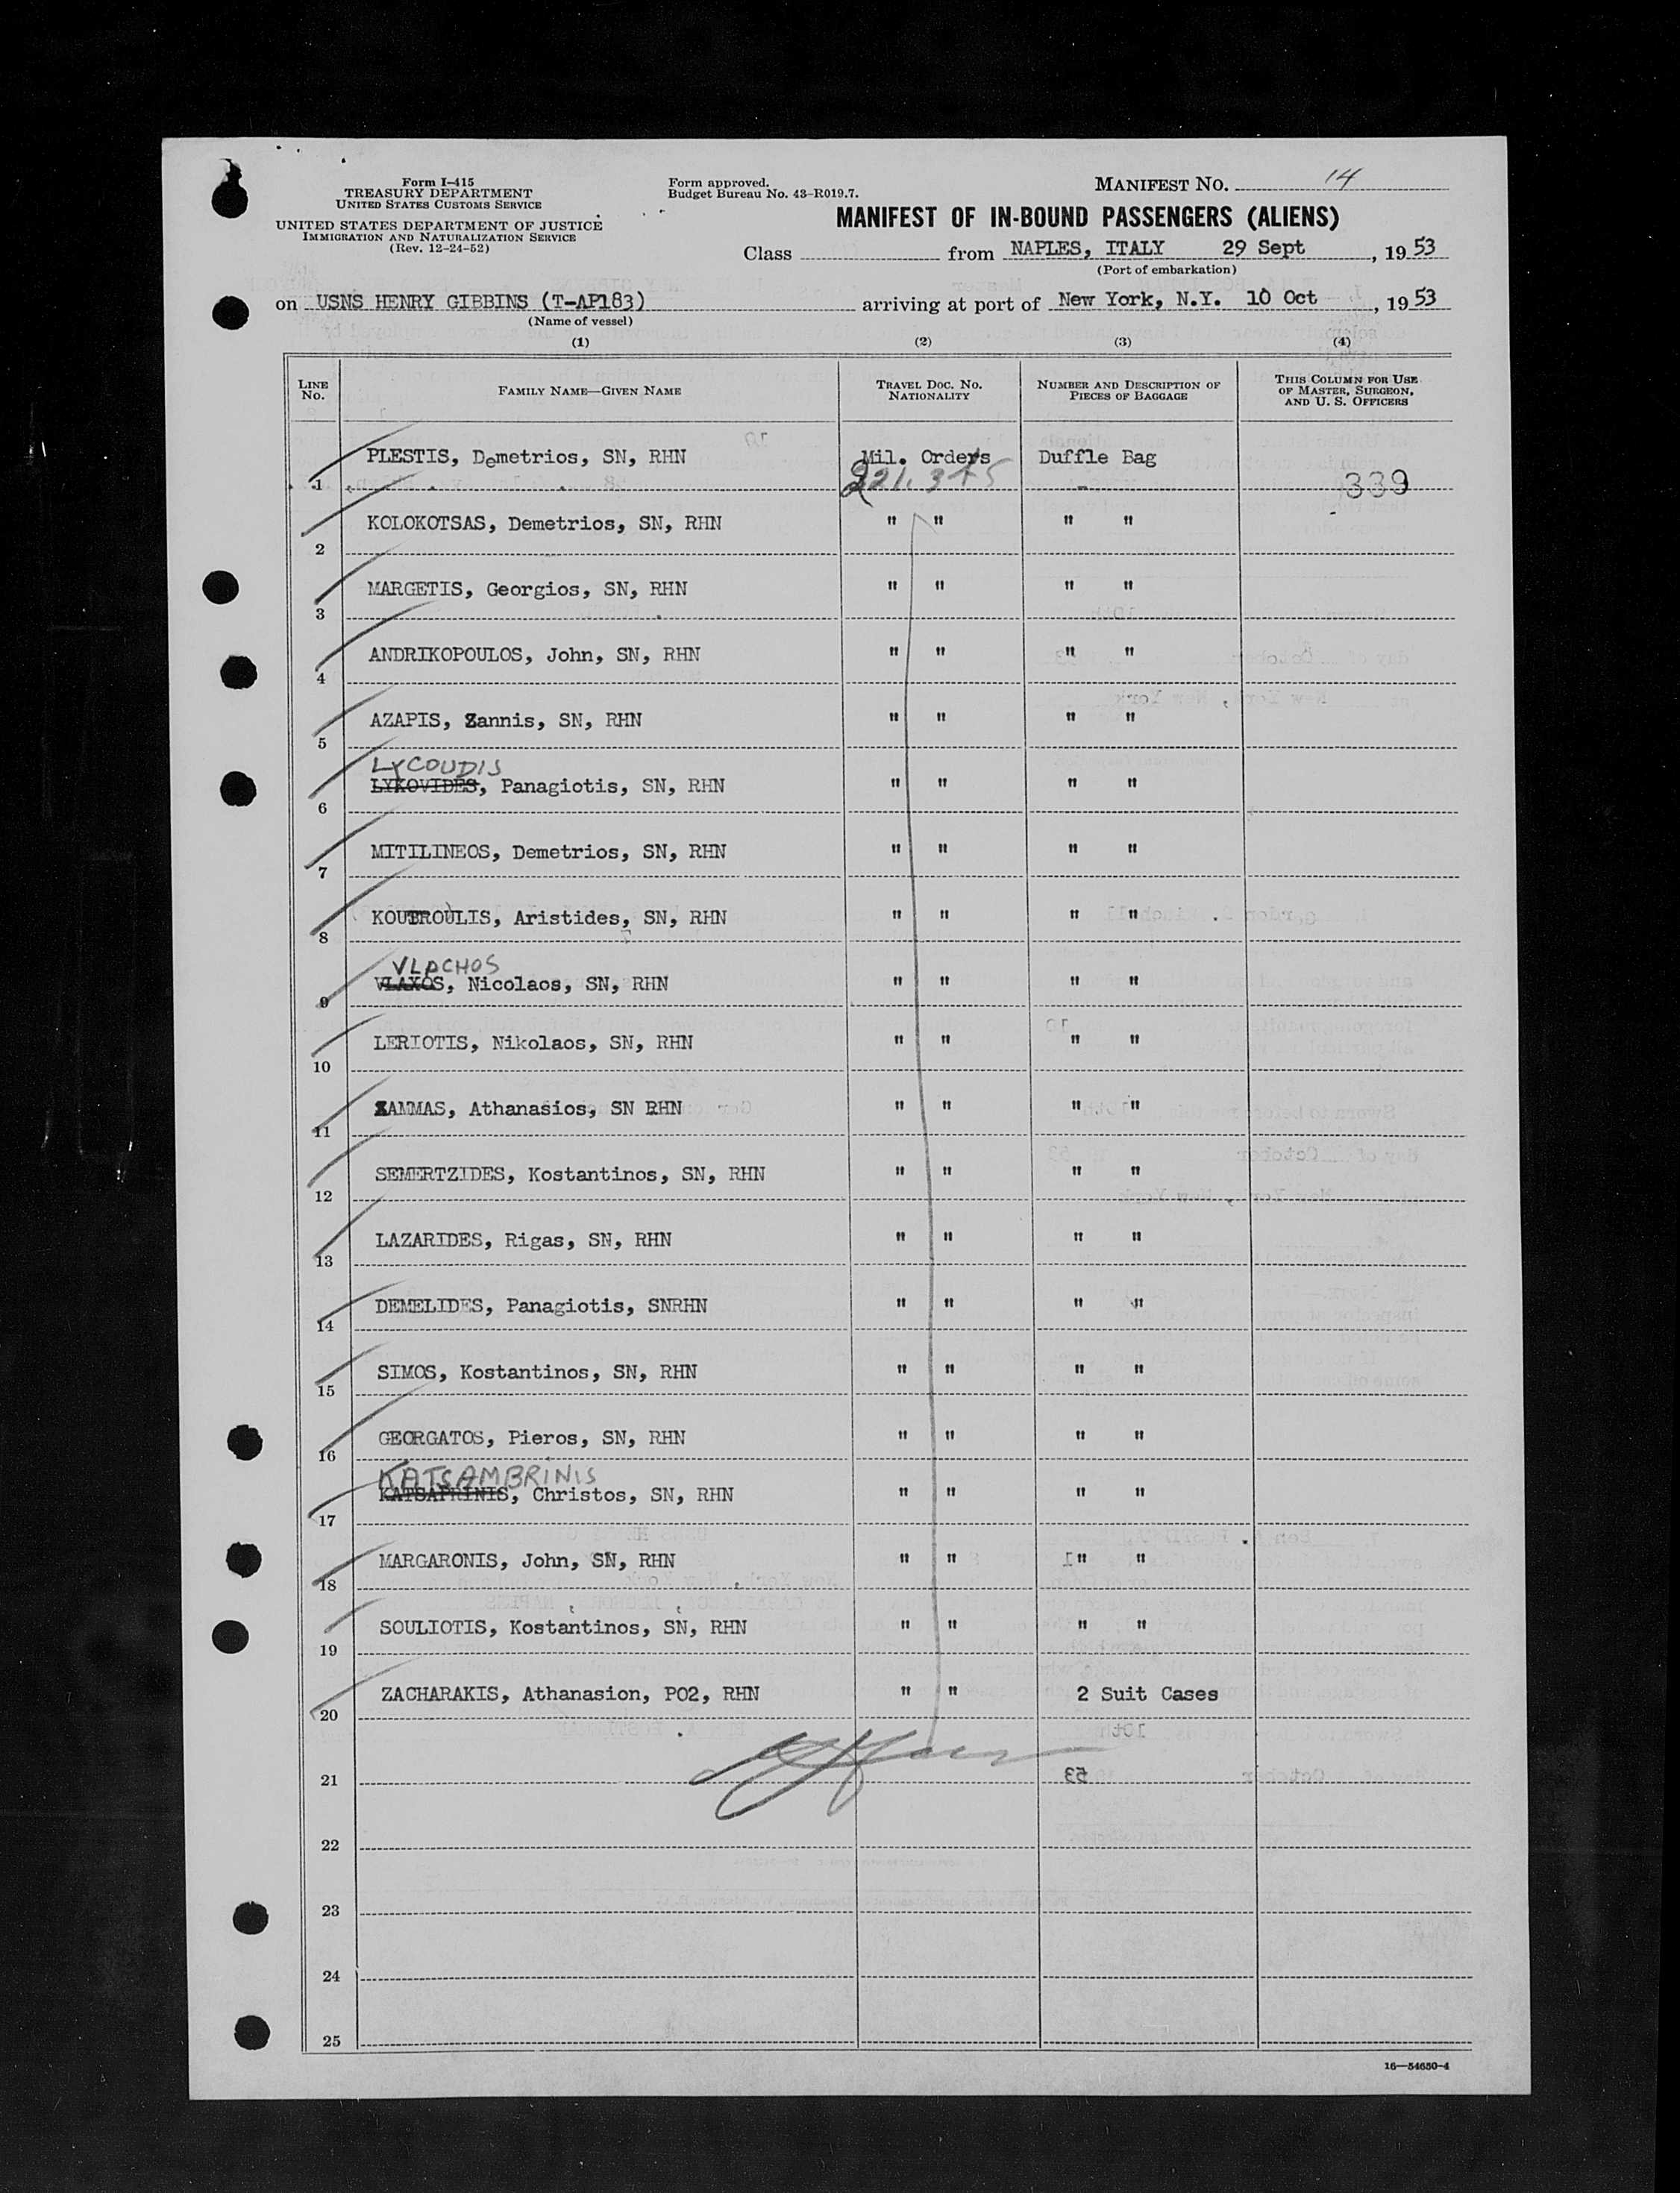 Form I-415
TREASURY DEPARTMENT
UNITED STATES CUSTOMS SERVICE
UNITED STATES DEPARTMENT OF JUSTICE
IMMIGRATION AND NATURALIZATION SERVICE
(Rev. 12-24-52)
Form approved.
Budget Bureau No. 43-R019.7.
MANIFEST NO. 14
MANIFEST OF IN-BOUND PASSENGERS (ALIENS)
Class from NAPLES, ITALY 29 Sept, 1953
(Port of embarkation)
on USNS HENRY GIBBINS (T-AP183) arriving at port of New York, N.Y. 10 Oct, 1953
(Name of vessel)
(1) (2) (3) (4)
LINE NO. FAMILY NAME—GIVEN NAME TRAVEL DOC. NO. NATIONALITY NUMBER AND DESCRIPTION OF PIECES OF BAGGAGE THIS COLUMN FOR USE OF MASTER, SURGEON, AND U. S. OFFICERS
1 PLESTIS, Demetrios, SN, RHN Mil. Orders Duffle Bag
339
2 KOLOKOTSAS, Demetrios, SN, RHN " " " "
3 MARGETIS, Georgios, SN, RHN " " " "
4 ANDRIKOPOULOS, John, SN, RHN " " " "
5 AZAPIS, Zannis, SN, RHN " " " "
LYCOUDIS
6 LYKOVIDES, Panagiotis, SN, RHN " " " "
7 MITILINEOS, Demetrios, SN, RHN " " " "
8 KOUTROULIS, Aristides, SN, RHN " " " "
VLACHOS
9 VLAXOS, Nicolaos, SN, RHN " " " "
10 LERIOTIS, Nikolaos, SN, RHN " " " "
11 ZAMMAS, Athanasios, SN RHN " " " "
12 SEMERTZIDES, Kostantinos, SN, RHN " " " "
13 LAZARIDES, Rigas, SN, RHN " " " "
14 DEMELIDES, Panagiotis, SNRHN " " " "
15 SIMOS, Kostantinos, SN, RHN " " " "
16 GEORGATOS, Pieros, SN, RHN " " " "
KATSAMBRINIS
17 KATSAPRINIS, Christos, SN, RHN " " " "
18 MARGARONIS, John, SN, RHN " " " "
19 SOULIOTIS, Kostantinos, SN, RHN " " " "
20 ZACHARAKIS, Athanasion, PO2, RHN " " 2 Suit Cases
21
22
23
24
25
16—54650-4